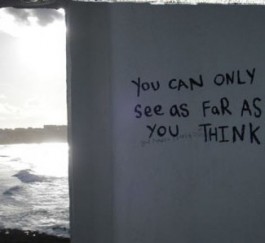 YOU CAN ONLY
See as FaR AS
YOU THINK